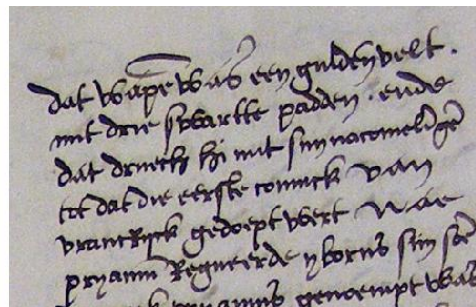 dat wape was een gulden velt .
mit drie swartte padden . ende
dat druech hi mit sijn nacomelinge
tot dat die eerste coninck van
vrancrijck gedoept wert Nae
pryamus Regneerde ybornus sijn soe
genoempt was